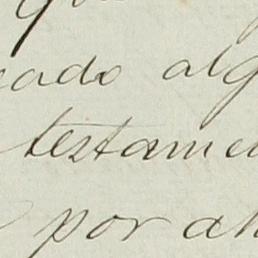 cado alg
testamen
por ah